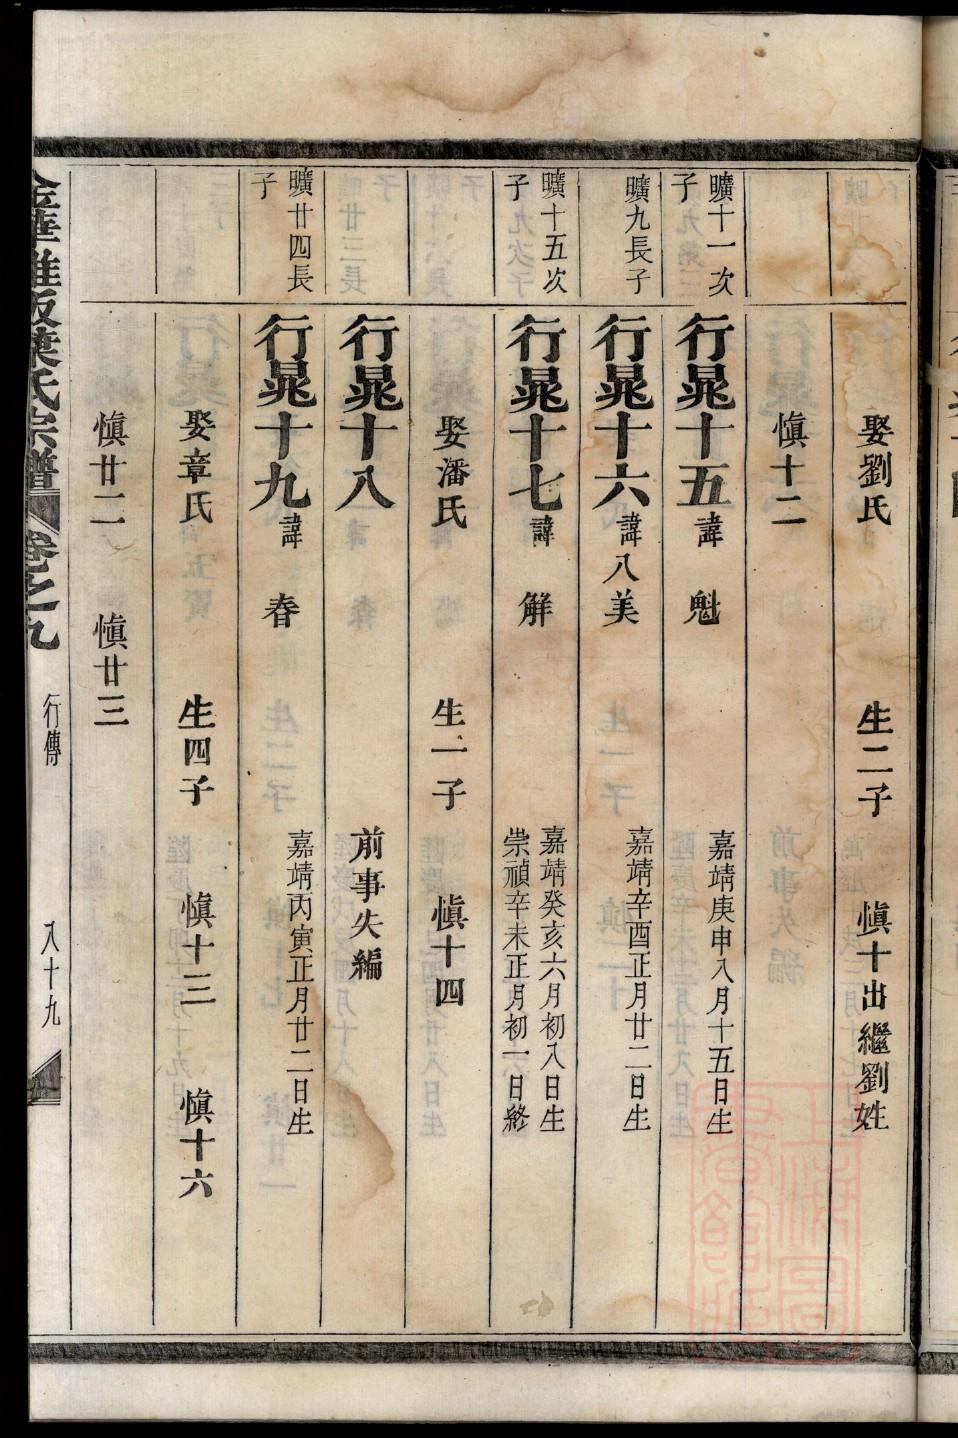 娶劉氏 生二子 慎十出繼劉姓
慎十二
曠十一次子 行晁十五 諱魁 嘉靖庚申八月十五日生
曠九長子 行晁十六 諱八美 嘉靖辛酉正月廿二日生
曠十五次子 行晁十七 諱解 嘉靖癸亥六月初八日生
崇禎辛未正月初一日終
娶潘氏 生一子 慎十四
行晁十八 前事失編
曠廿四長子 行晁十九 諱春 嘉靖丙寅正月廿二日生
娶章氏 生四子 慎十三 慎十六
慎廿二 慎廿三
葉氏宗譜 卷之九 行傳 八十九